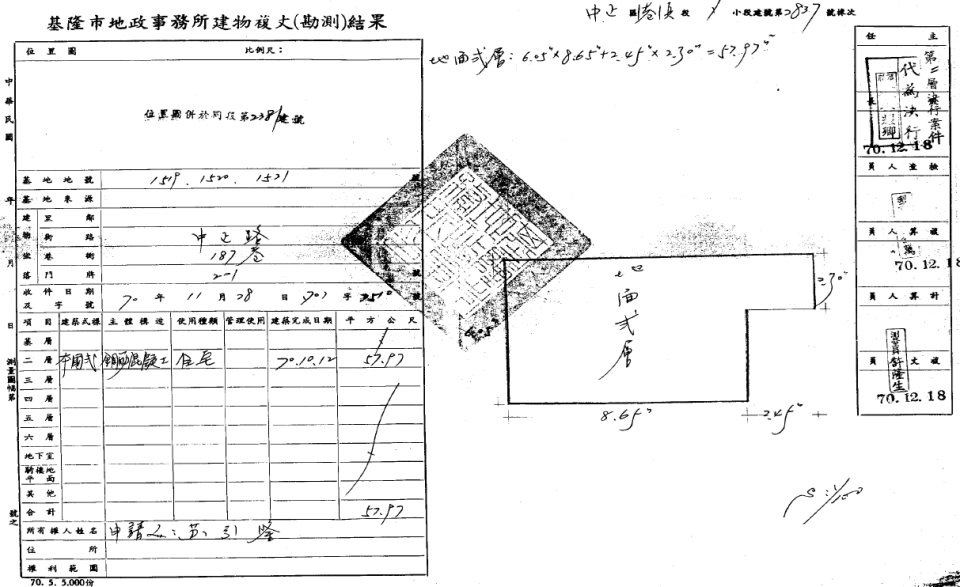 基隆市地政事務所建物複丈(勘測)結果
中正區港濱段 小段建號第2837號棟次
位置圖 比例尺:
位置圖併於同段第2381建號
地面式層:6.05×8.65+2.45×2.30=57.97
中華民國 年 月 日 測量圖幅第 號之
基地地號 1519、1520、1521 號
基地來源
建物坐落
里鄰
街路 中正路
巷衖 187巷
門牌 2-1 號
收件日期及字號 70年11月28日 字 號
項目 建築式樣 主體構造 使用種類 管理使用 建築完成日期 平方公尺
基層
二層 本國式 鋼筋混凝土 住宅 70.10.12 57.97
三層
四層
五層
六層
地下室
騎樓地平面
其他
合計 57.97
所有權人姓名 申請人:
住所
權利範圍
70.5.5,000份
地面式層
2.30
6.05
8.65
2.45
S:1/100
主任
第二層決行案件
代為決行
70.12.18
檢查人員
複算人員
70.12.18
計算人員
複丈人員
測量員許隆生
70.12.18